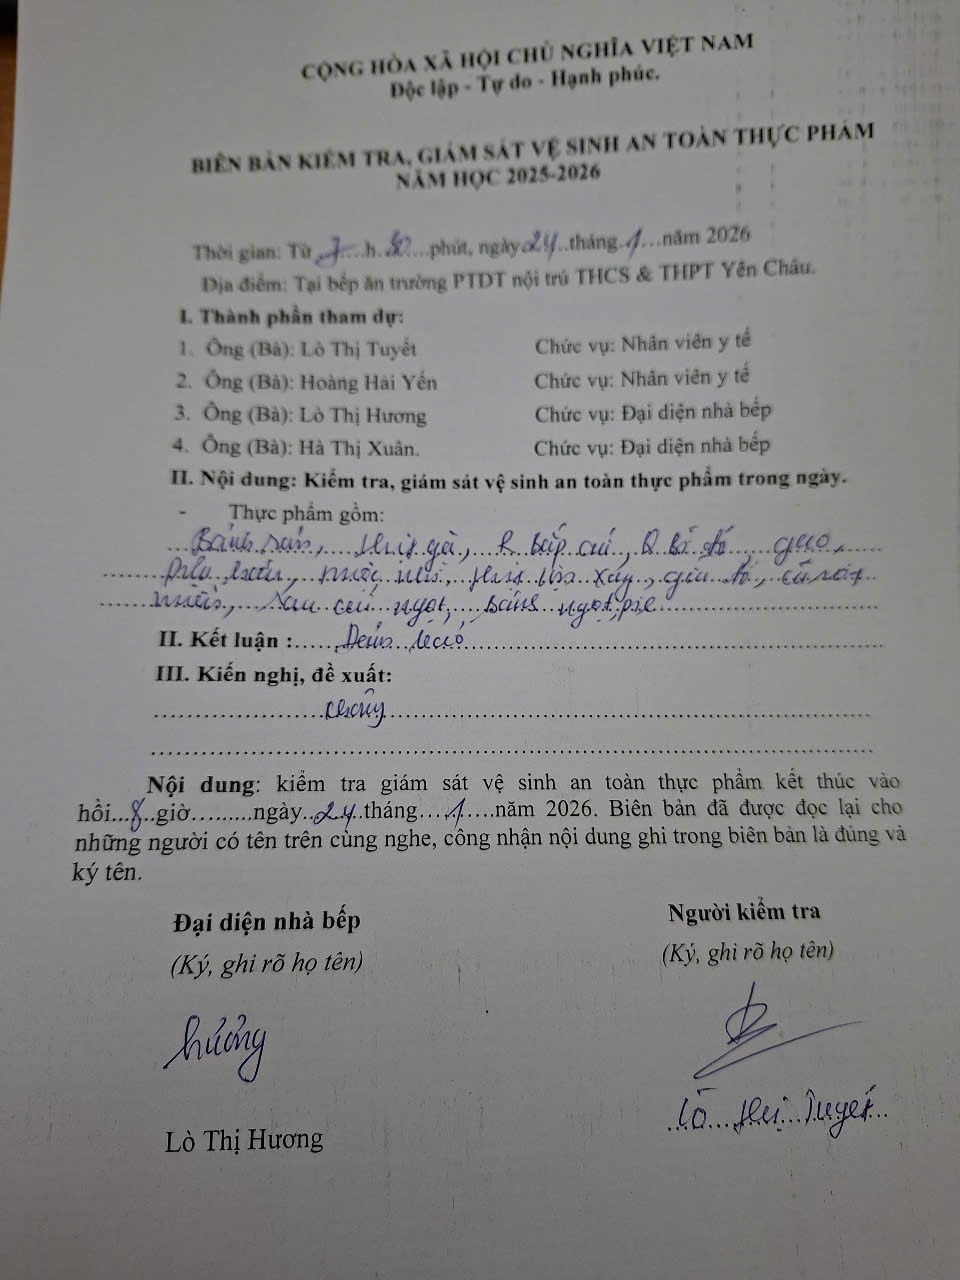 CỘNG HÒA XÃ HỘI CHỦ NGHĨA VIỆT NAM
Độc lập - Tự do - Hạnh phúc.
BIÊN BẢN KIỂM TRA, GIÁM SÁT VỆ SINH AN TOÀN THỰC PHẨM
NĂM HỌC 2025-2026
Thời gian: Từ 7 h 30 phút, ngày 24 tháng 1 năm 2026
Địa điểm: Tại bếp ăn trường PTDT nội trú THCS & THPT Yên Châu.
I. Thành phần tham dự:
1. Ông (Bà): Lò Thị Tuyết Chức vụ: Nhân viên y tế
2. Ông (Bà): Hoàng Hải Yến Chức vụ: Nhân viên y tế
3. Ông (Bà): Lò Thị Hương Chức vụ: Đại diện nhà bếp
4. Ông (Bà): Hà Thị Xuân. Chức vụ: Đại diện nhà bếp
II. Nội dung: Kiểm tra, giám sát vệ sinh an toàn thực phẩm trong ngày.
- Thực phẩm gồm:
Bánh rán, thịt gà, bắp cải, bí đỏ, gạo,
thịt xay, giá đỗ, cà rốt
rau cải ngọt, bánh ngọt
II. Kết luận :
III. Kiến nghị, đề xuất:
Không
Nội dung: kiểm tra giám sát vệ sinh an toàn thực phẩm kết thúc vào
hồi 8 giờ.........ngày 24 tháng 1 năm 2026. Biên bản đã được đọc lại cho
những người có tên trên cùng nghe, công nhận nội dung ghi trong biên bản là đúng và
ký tên.
Đại diện nhà bếp Người kiểm tra
(Ký, ghi rõ họ tên) (Ký, ghi rõ họ tên)
Hương
Lò Thị Tuyết
Lò Thị Hương